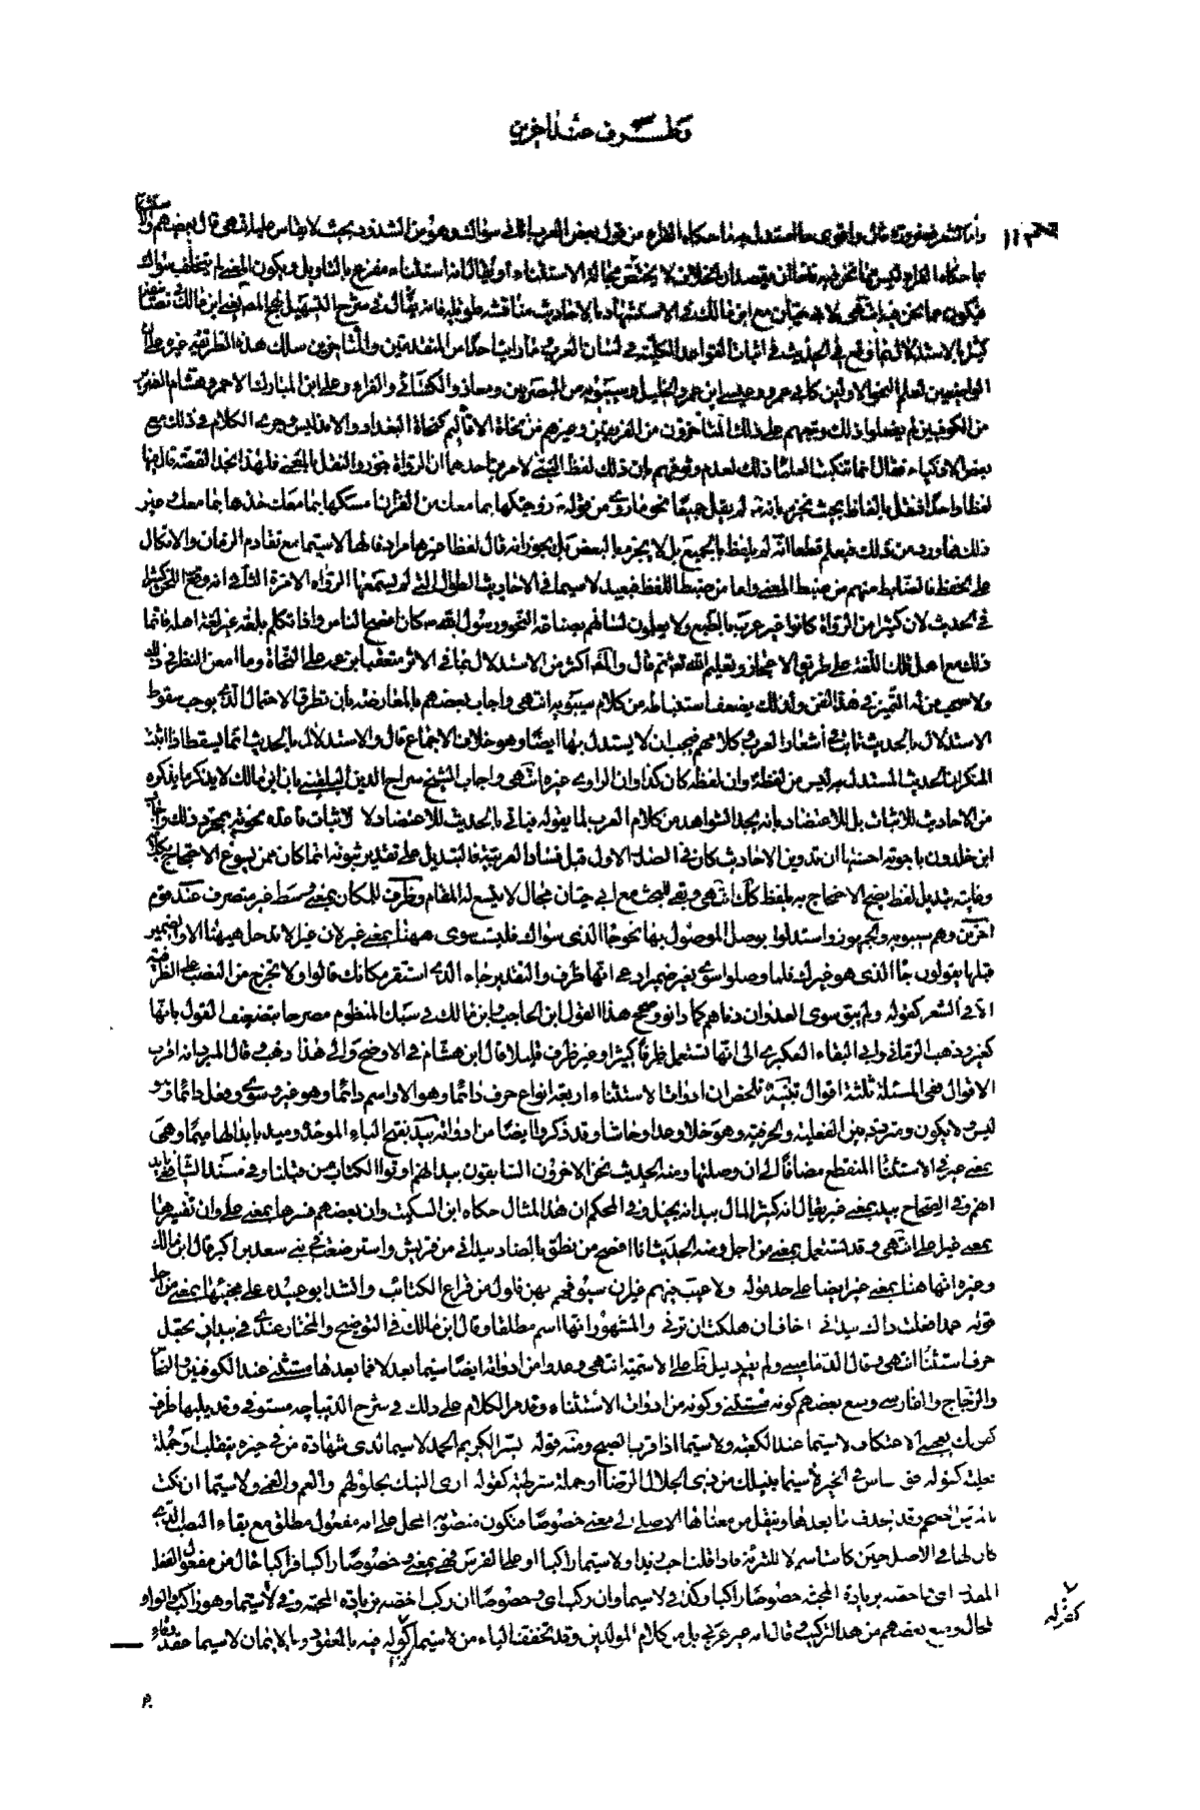 وظرف عند اخرين
واما الشعر فضرورة قال واقوى ما استدل به ما حكاه الفراء من قول بعض العرب اتاني سواك وهو من الشذوذ بحيث لا يقاس عليه انتهى قال بعضهم
ما حكاه الفراء ليس مما نحن فيه
فيكون مما نحن فيه انتهى ولابي حيان مع ابن مالك في الاستشهاد بالاحاديث مناقشة طويلة فانه قال في شرح التسهيل
كثيرا بالاستدلال بما وقع في الحديث في اثبات القواعد الكلية في لسان العرب وما رايت احدا من المتقدمين والمتاخرين سلك هذه الطريقة غيره على ان
الواضعين لعلم النحو الاولين كابي عمرو وعيسى ابن عمر والخليل وسيبويه من البصريين ومعاذ والكسائي والفراء وعلى ابن المبارك الاحمر وهشام الضرير
من الكوفيين لم يفعلوا ذلك وتبعهم على ذلك المتاخرون من الفريقين وغيرهم من نحاة الاقاليم كنحاة البغداد والاندلس وجرى الكلام في ذلك مع
بعض الاذكياء فقال انما تنكبت العلماء ذلك لعدم وثوقهم بان ذلك لفظ النبي لامرين احدهما ان الرواة جوزوا النقل بالمعنى فلهذا نجد القصة قال فيها
لفظا واحدا فنقل بالفاظ بحيث نجزم بانه لم يقل جميعها نحو ما روى من قوله زوجتكها بما معك من القران ملكتكها بما معك خذها بما معك وغير
ذلك مما ورد من ذلك فيعلم قطعا انه لم يلفظ بالجميع بل لا يجزم بالبعض بل يجوز انه قال لفظا غيرها مرادفا لها لاسيما مع تقادم الزمان والاتكال
على الحفظ فالضابط منهم من ضبط المعنى واما من ضبط اللفظ فبعيد لاسيما في الاحاديث الطوال التي لم يسمعها الرواة الا مرة الثاني انه وقع اللحن كثيرا
في الحديث لان كثيرا من الرواة كانوا غير عرب بالطبع ولا يعلمون لسانهم بصناعة النحو ورسول الله كان افصح الناس واذا تكلم بلغة غير لغة اهله فانما
ذلك مع اهل تلك اللغة على طريق الاعجاز وتعليم الله ثم قال والمص اكثر من الاستدلال بما في الاثر متعقبا بزعمه على النحاة وما امعن النظر في ذلك
ولا صحب من له التميز في هذا الفن ولذلك يضعف استنباطه من كلام سيبويه انتهى واجاب بعضهم بالمعارضه بان تطرق الاحتمال الذي يوجب سقوط
الاستدلال بالحديث ثابت في اشعار العرب وكلامهم فيجب ان لا يستدل بها ايضا وهو خلاف الاجماع قال والاستدلال بالحديث انما يسقط اذا اثبت
المنكر ان الحديث المستدل به ليس من لفظه وان لفظه كان كذا وان الراوي غيره انتهى واجاب الشيخ سراج الدين البلقيني بان ابن مالك لا يذكر ما يذكره
من الاحاديث للاثبات بل للاعتضاد بانه يجد الشواهد من كلام العرب لما يقوله فياتي بالحديث للاعتضاد لا لاثبات قاعدة نحوية بمجرد ذلك واجاب
ابن خلدون باجوبة احسنها ان تدوين الاحاديث كان في الصدر الاول قبل فساد العربية فالتبديل على تقدير ثبوته انما كان ممن يسوغ الاحتجاج بكلامه
وغايته تبديل لفظ يصح الاحتجاج به بلفظ كذلك انتهى وبقى للبحث مع ابي حيان مجال لا يسع له المقام وظرف للمكان بمعنى وسط غير متصرف عند قوم
اخرين وهم سيبويه والجمهور واستدلوا بوصل الموصول بها نحو جا الذي سواك فليست سوى ههنا بمعنى غير لان غيرا لا تدخل ههنا الا والضمير
قبلها يقولون جا الذي هو غيرك فلما وصلوا سوى بغير ضمير ادعى انها ظرف والتقدير جاء الذي استقر مكانك قالوا ولا تخرج من النصب على الظرفية
الا في الشعر كقوله ولم يبق سوى العدوان دناهم كما دانوا وصحح هذا القول ابن الحاجب وابن مالك في سبك المنظوم مصرحا بتضعيف القول بانها
كغير وذهب الرماني وابي البقاء العكبري الى انها تستعمل ظرفا كثيرا وغير ظرف قليلا قال ابن هشام في الاوضح والى هذا اذهب وقال المبرد انه اقرب
الاقوال ففي المسئلة ثلثة اقوال تنبيه تلخص ان ادوات الاستثناء اربعة انواع حرف دائما وهو الا واسم دائما وهو غير وسوى وفعل دائما وهو
ليس ولا يكون ومتردد بين الفعلية والحرفية وهو خلا وعدا وحاشا وقد ذكروا ايضا من ادواته بيد بفتح الباء الموحدة وميد بابدالها ميما وهي
بمعنى غير في الاستثناء المنقطع مضافا الى ان وصلتها ومنه الحديث نحن الاخرون السابقون بيد انهم اوتوا الكتاب من قبلنا وفي مسند الشافعي بايد
انهم وفي الصحاح بيد بمعنى غير يقال انه كثير المال بيد انه بخيل وفي المحكم ان هذا المثال حكاه ابن السكيت وان بعضهم فسرها بمعنى على وان تفسيرها
بمعنى غير اعلى انتهى وقد تستعمل بمعنى من اجل ومنه الحديث انا افصح من نطق بالضاد بيد اني من قريش واسترضعت في بني سعد بن بكر قال ابن مالك
وغيره انها هنا بمعنى غير ايضا على حد قوله ولا عيب فيهم غير ان سيوفهم بهن فلول من قراع الكتائب وانشد ابو عبيدة على مجيئها بمعنى من اجل
قوله عمدا فعلت ذاك بيد اني اخاف ان هلكت ان ترني والمشهور انها اسم مطلقا وقال ابن مالك في التوضيح والمختار عندي في بيد ان يجعل
حرف استثناء انتهى وقال الدماميني ولم يقم دليل ظ على الاسمية انتهى وعدوا من ادواته ايضا سيما بعد لا فما بعدها مستثنى عند الكوفيين
والزجاج والفارسي ومنع بعضهم كونه مستثنى وكونه من ادوات الاستثناء وقد مر الكلام على ذلك في شرح الديباجة مستوفى وقد يليها ظرف
كقولك يعجبني الاعتكاف لاسيما عند الكعبة ولاسيما اذا قرب الصبح ومنه قوله يسر الكريم الحمد لاسيما لدى شهادة من في خيره يتقلب او جملة
فعلية كقوله فق الناس في الخير لاسيما ينيلك من ذي الجلال الرضا او جملة شرطية كقوله ارى النيك يجلو الهم والغم والعمى ولاسيما ان نكت
وقد يحذف ما بعدها وينقل من معناها الاصلي الى معنى خصوصا فيكون منصوب المحل على انه مفعول مطلق مع بقاء النصب الذي
كان لها في الاصل حين كانت اسم لا للتبرئة فاذا قلت احب زيدا ولاسيما راكبا او على الفرس فهي بمعنى وخصوصا راكبا فراكبا حال من مفعول الفعل
المقدر اي اخصه بزيادة المحبة خصوصا راكبا وكذا في لاسيما وان ركب اي وخصوصا ان ركب اخصه بزيادة المحبة وفي لاسيما وهو راكب والواو
للحال ومنع بعضهم من هذا التركيب وقال انه غير عربي بل من كلام المولدين وقد تخفف الياء من لاسيما كقوله فه بالعقود وبالايمان لاسيما عقد
كقوله